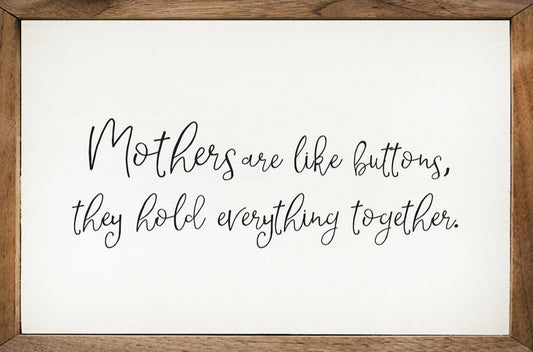 Mothers are like buttons,
they hold everything together.